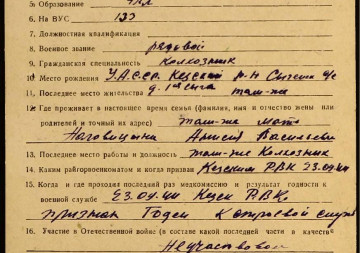 5. Образование 4 кл
6. На ВУС 133
7. Должностная квалификация
8. Военное звание рядовой
9. Гражданская специальность колхозник
10. Место рождения УАССР. Кезский р-н
11. Последнее место жительства там-же
12. Где проживает в настоящее время семья (фамилия, имя и отчество жены или
родителей и точный их адрес) там-же мать
Наговицына Василье
13. Последнее место работы и должность там-же Колхозник
14. Каким райгорвоенкоматом и когда призван Кезским РВК 23.09.44
15. Когда и где проходил последний раз медкомиссию и результат годности к
военной службе 23.09.44 Кезск РВК.
признан Годен К строевой служб
16. Участие в Отечественной войне (в составе какой последней части и в качеств
Не участвовал